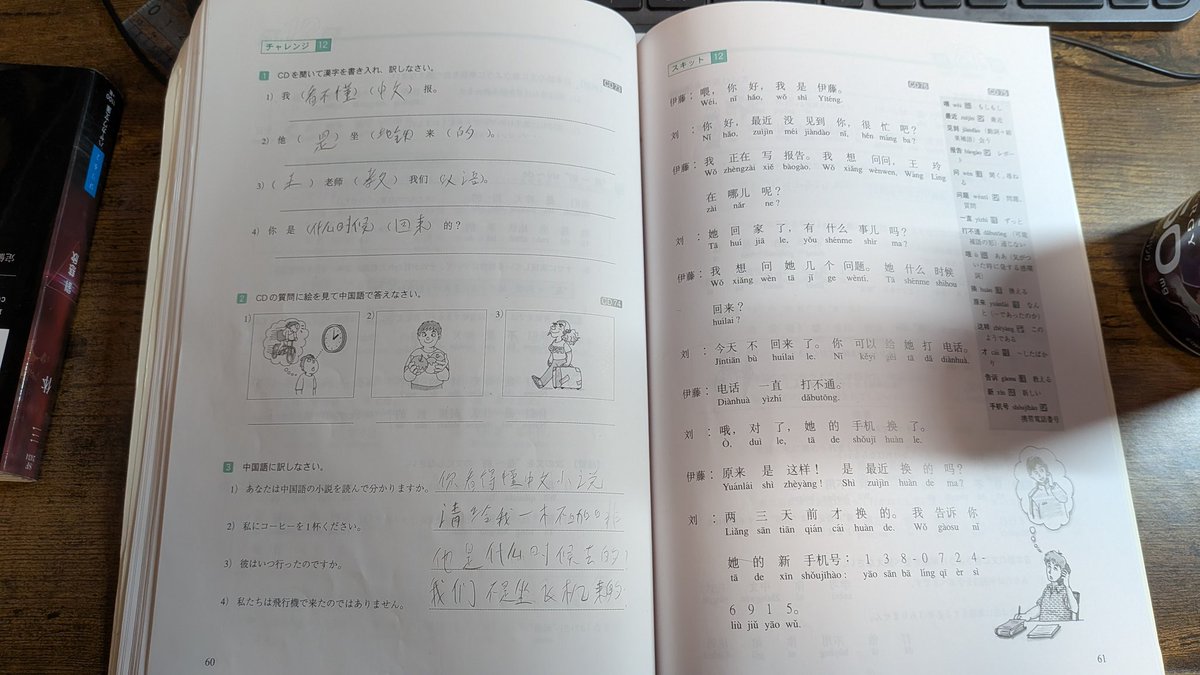 チャレンジ 12
1 CDを聞いて漢字を書き入れ、訳しなさい。
CD 73
1) 我 (看不懂) (中文) 报。
2) 他 ( 是 ) 坐 (地铁) 来 (的)。
3) (王) 老师 (教) 我们 (汉语)。
4) 你 是 (什么时候) (回来) 的?
2 CDの質問に絵を見て中国語で答えなさい。
CD 74
1)
2)
3)
3 中国語に訳しなさい。
1) あなたは中国語の小説を読んで分かりますか。 你看得懂中文小说
2) 私にコーヒーを1杯ください。 请给我一杯
3) 彼はいつ行ったのですか。 他是什么时候去的
4) 私たちは飛行機で来たのではありません。 我们不是坐飞机来的
60
スキット 12
CD 76
CD 75
伊藤: 喂, 你 好, 我 是 伊藤。
Wéi, nǐ hǎo, wǒ shì Yīténg.
刘 : 你 好, 最近 没 见到 你, 很 忙 吧?
Nǐ hǎo, zuìjìn méi jiàndào nǐ, hěn máng ba?
伊藤: 我 正在 写 报告。 我 想 问问, 王 玲
Wǒ zhèngzài xiě bàogào. Wǒ xiǎng wènwen, Wáng Líng
在 哪儿 呢?
zài nǎr ne?
刘 : 她 回 家 了, 有 什么 事儿 吗?
Tā huí jiā le, yǒu shénme shìr ma?
伊藤: 我 想 问 她 几 个 问题。 她 什么 时候
Wǒ xiǎng wèn tā jǐ ge wèntí. Tā shénme shíhou
回来?
huílai?
刘 : 今天 不 回来 了。 你 可以 给 她 打 电话。
Jīntiān bù huílai le. Nǐ kěyǐ gěi tā dǎ diànhuà.
伊藤: 电话 一直 打不通。
Diànhuà yìzhí dǎbutōng.
刘 : 哦, 对 了, 她 的 手机 换 了。
Ò, duì le, tā de shǒujī huàn le.
伊藤: 原来 是 这样! 是 最近 换 的 吗?
Yuánlái shì zhèyàng! Shì zuìjìn huàn de ma?
刘 : 两 三 天 前 才 换 的。 我 告诉 你
Liǎng sān tiān qián cái huàn de. Wǒ gàosu nǐ
她 的 新 手机号: 1 3 8 - 0 7 2 4 -
tā de xīn shǒujīhào: yāo sān bā líng qī èr sì
6 9 1 5。
liù jiǔ yāo wǔ.
喂 wéi もしもし
最近 zuìjìn 最近
见到 jiàndào (動詞+結果補語) 会う
报告 bàogào レポート
问 wèn 聞く, 尋ねる
问题 wèntí 問題, 質問
一直 yìzhí ずっと
打不通 dǎbutōng (可能補語の形) 通じない
哦 ò ああ (気がついた時に発する感嘆詞)
换 huàn 換える
原来 yuánlái なんと (~であったのか)
这样 zhèyàng このようである
才 cái ~したばかり
告诉 gàosu 教える
新 xīn 新しい
手机号 shǒujīhào 携帯電話番号
61